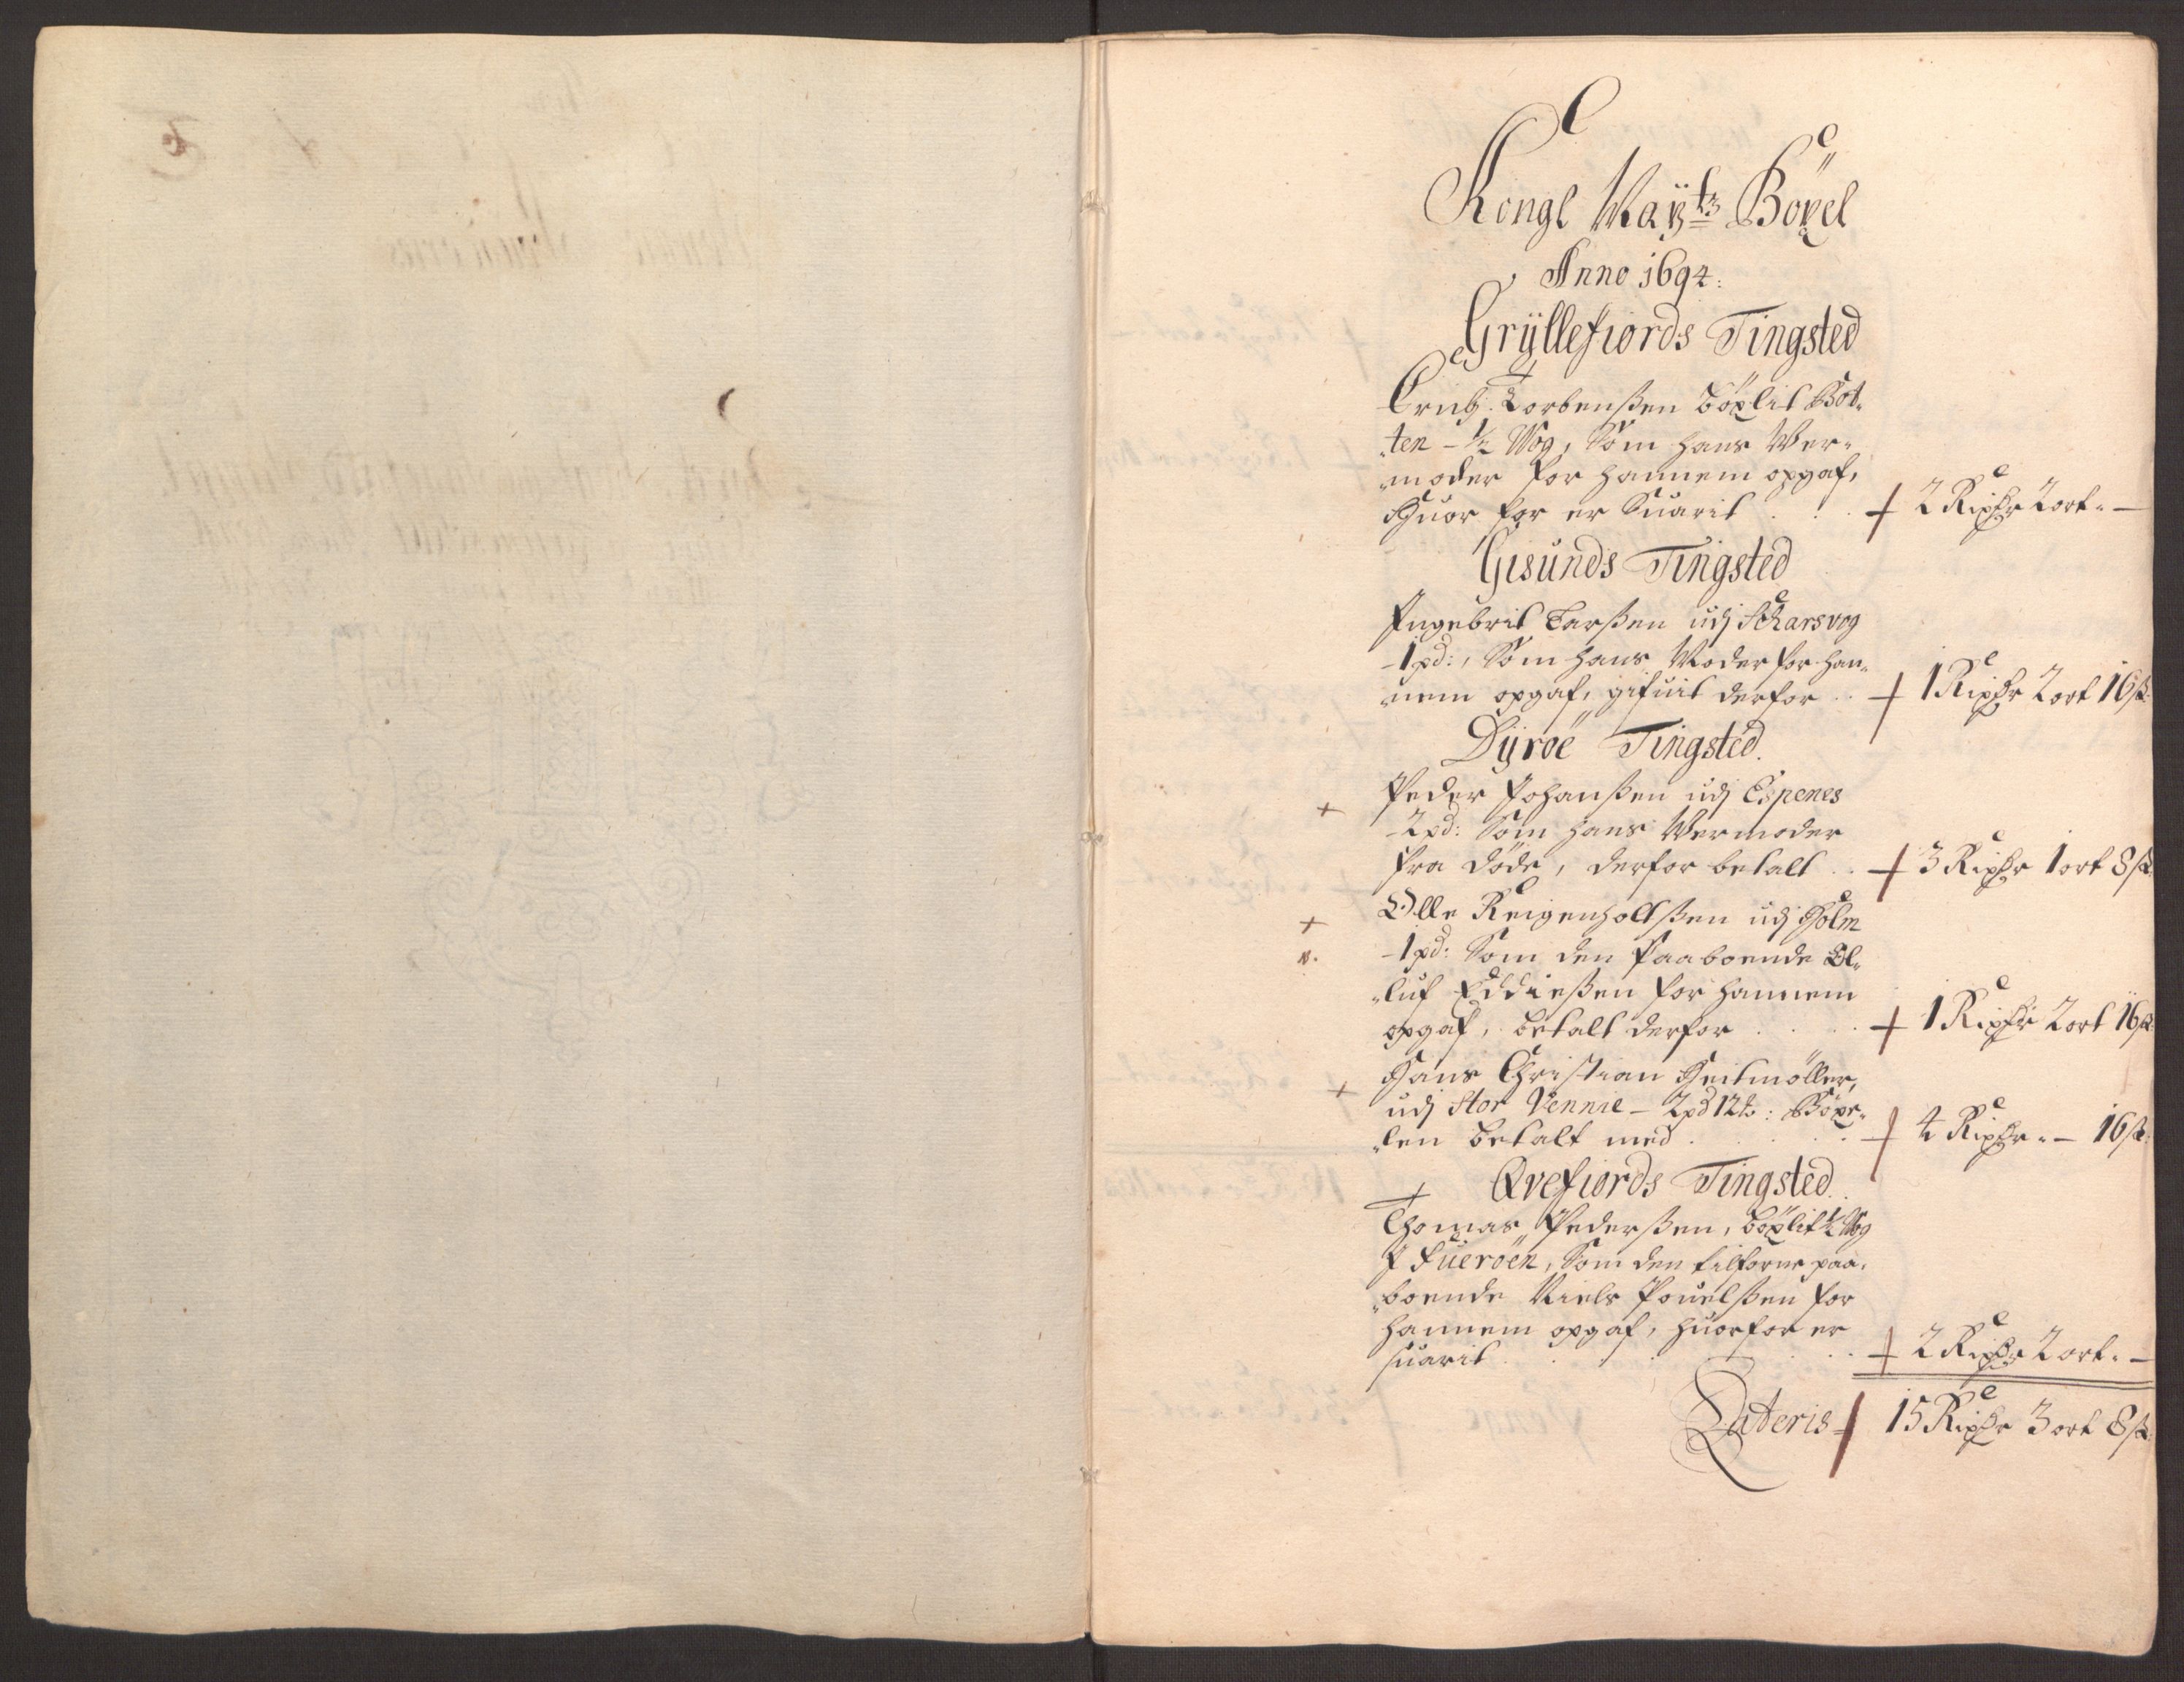 Kongl Maÿts Böxel
Anno 1694:
Grÿllefiords Tingsted
Torbenßen böxlit Bot-
ten - ½ Wog, Som hans Wer-
moder for hannem opgaf,
Huor for er Suarit . . . 2 Rixdr 2 ort. -
Gisunds Tingsted
Ingebrit Larßen udj Skarsvog
- 1 pd:, Som hans Moder for han-
nem opgaf, gifuit derfor . . 1 Rixdr 2 ort 16 ß.
Dÿröe Tingsted.
Peder Johanßen udj Espenes
- 2 pd: Som hans Wermoder
fra döde, derfor betalt . . 3 Rixdr 1 ort 8 ß.
Olle Reigenholtßen udj Holm
- 1 pd: Som den Paaboende Ol-
luf Eddießen for hannem
opgaf, betalt derfor . . . 1 Rixdr 2 ort 16 ß
Hans Christian Heitmöller,
udj Stor Vennie - 2 pd 12 lb: Böxe-
len betalt med . . . . 4 Rixdr. - 16 ß.
Qvefiords Tingsted.
Thomas Pederßen, böxlit ½ Wog
J Fueröen, Som den tilforne paa-
boende Niels Pouelßen for
hannem opgaf, huorfor er
suarit . . . . 2 Rixdr 2 ort. -
Lateris 15 Rixdr 3 ort 8 ß.